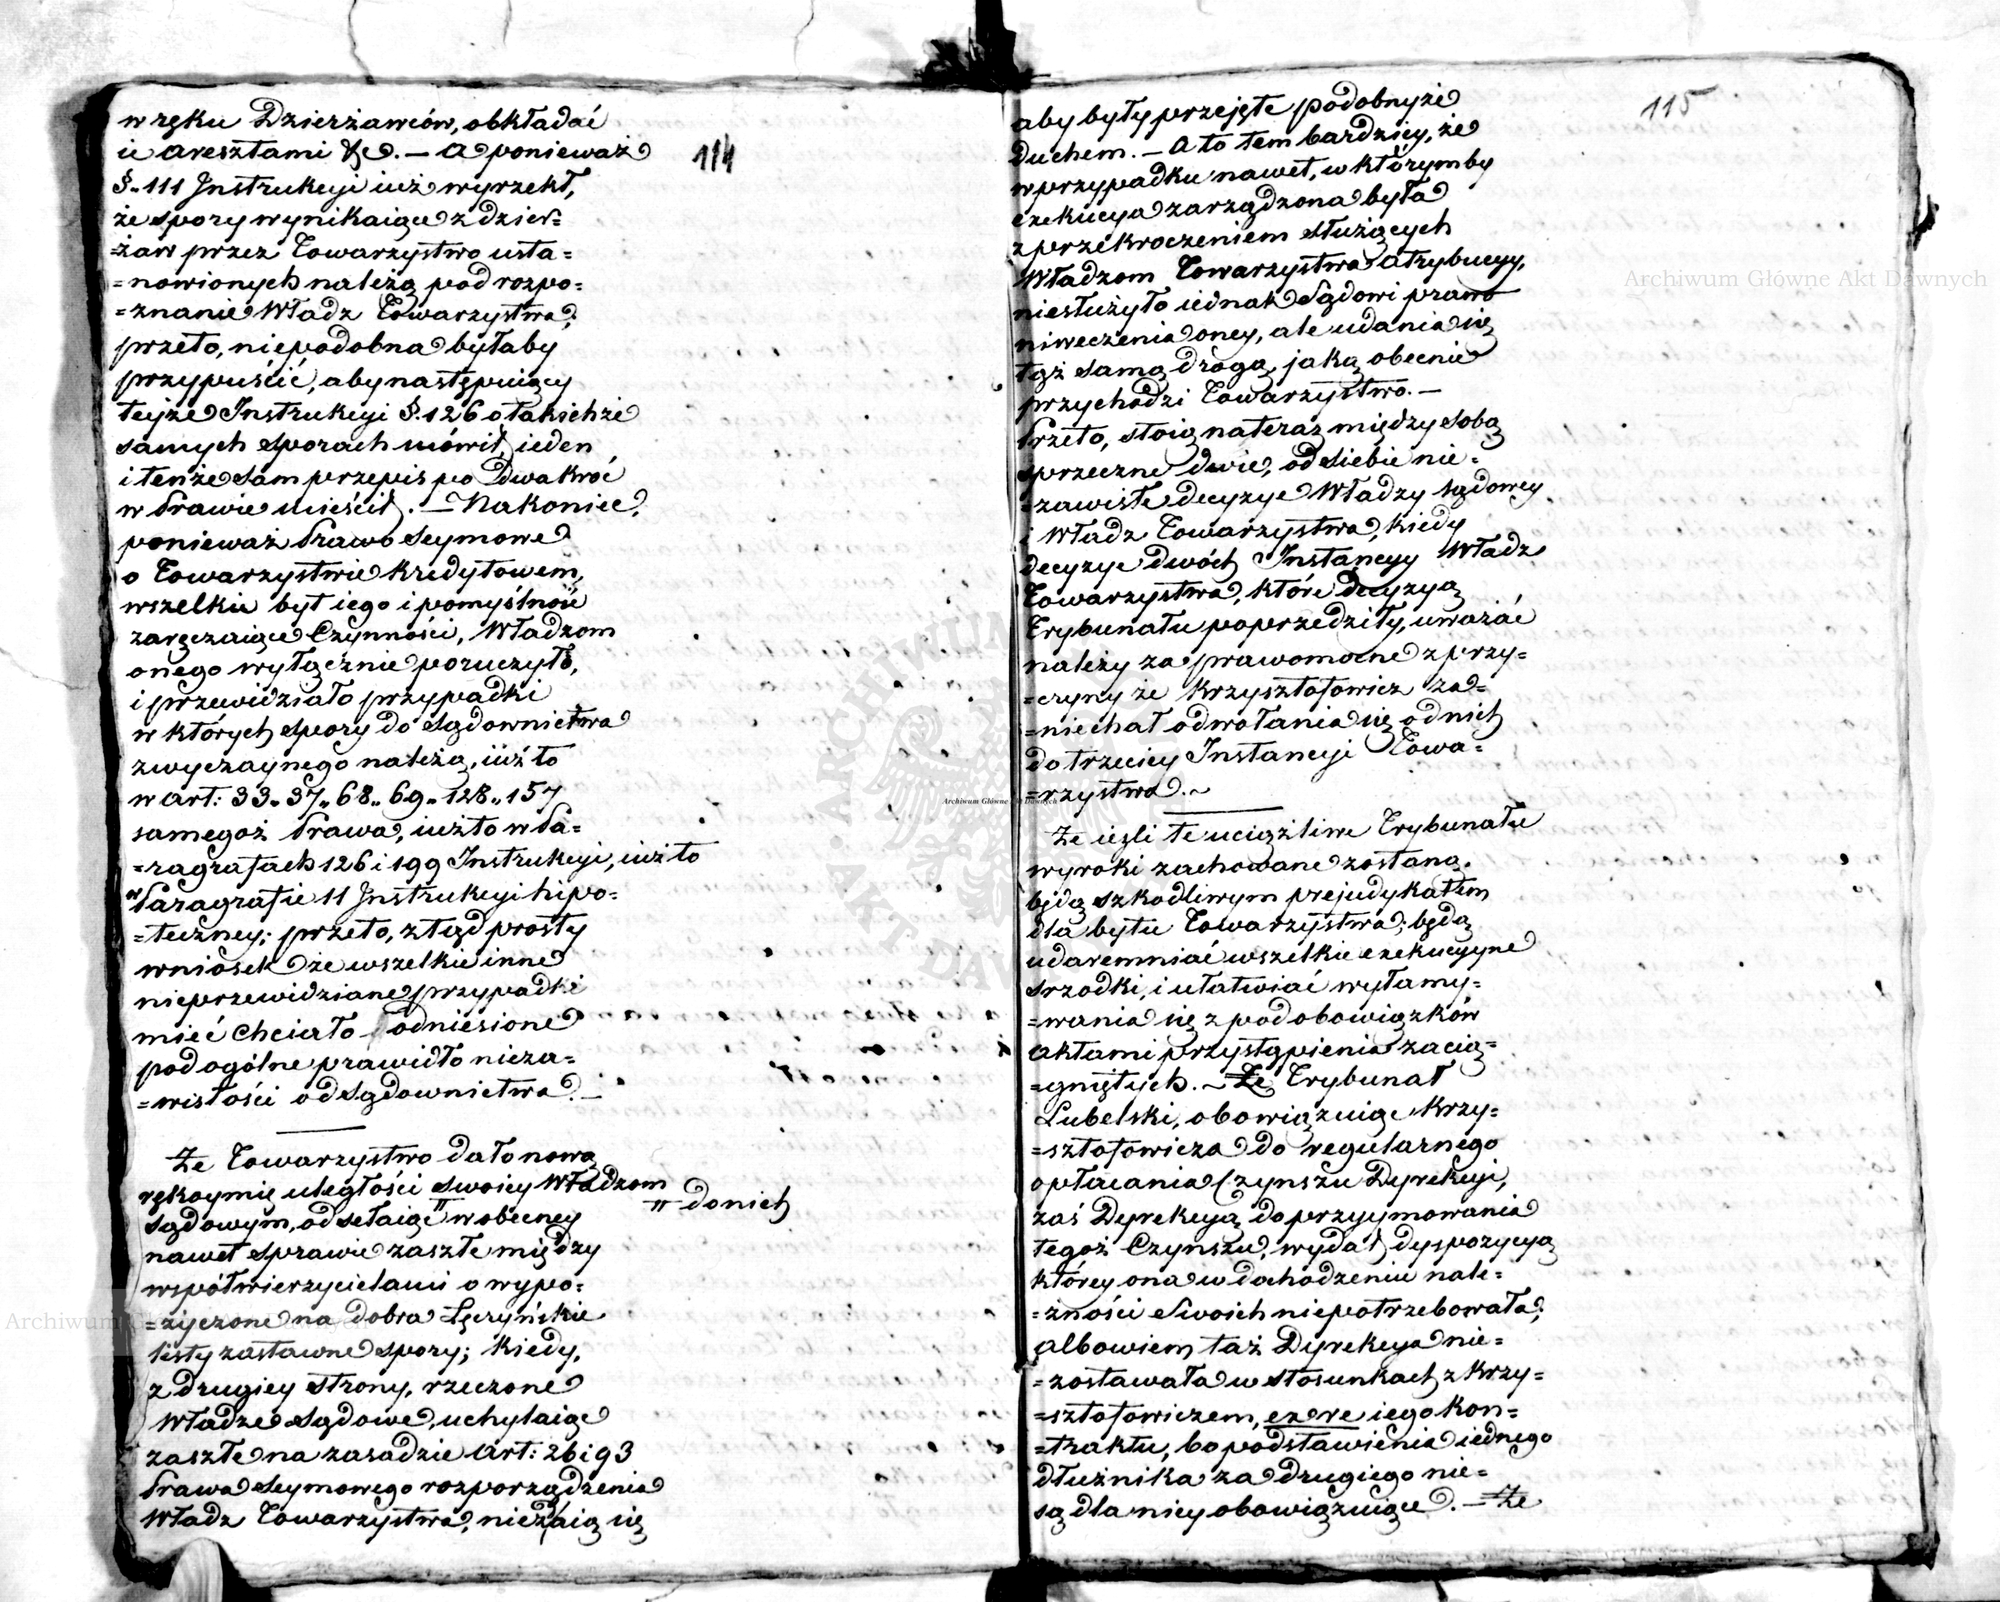 114
w ręku Dzierżawców, obkładać
ie aresztami &c. — a ponieważ
§. 111 Instrukcyi iuż wyrzekł,
że spory wynikaiące z dzier=
=żaw przez Towarzystwo usta=
=nowionych należą pod rozpo=
=znanie Władz Towarzystwa;
przeto, niepodobna byłaby
przypuścić, aby następuiący
teyże Instrukcyi §. 126 o takichże
samych sporach mówił, ieden
i tenże sam przepis po Dwakroć
w Prawie mieścił. — Nakoniec,
ponieważ Prawo Seymowe
o Towarzystwie kredytowem,
wszelkie byt iego i pomyślność
zaręczaiące Czynności, Władzom
onego wyłącznie poruczyło,
i przewidziało przypadki
w których spory do Sądownictwa
zwyczaynego należą, iuż to
w art: 33. 37. 68. 69. 128. 157
samegoż Prawa, iuż to w Pa=
=ragrafach 126 i 199 Instrukcyi, iuż to
w Paragrafie 11 Instrukcyi hipo=
=teczney; przeto, ztąd prosty
wniosek że wszelkie inne
nieprzewidziane przypadki
mieć Chciało odniesione
pod ogólne prawidło nieza=
=wisłości od Sądownictwa. —
Że Towarzystwo dało nową
rękoymię uległości swoiey Władzom
Sądowym, odsełaiąc " w obecney
" do nich
nawet sprawie zaszłe między
współwierzycielami o wypo=
=życzone na dobra Łęczyńskie
listy zastawne spory; kiedy,
z drugiey strony, rzeczone
Władze Sądowe, uchylaiąc
zaszłe na zasadzie art: 26 i 93
Prawa Seymowego rozporządzenia
Władz Towarzystwa, nieżaią się
115
aby były przejęte podobnyże
Duchem. — A to tem bardziey, że
w przypadku nawet, w którymby
exekucya zarządzona była
z przekroczeniem służących
Władzom Towarzystwa atrybucyy,
niesłużyło iednak Sądowi prawo
niweczenia oney, ale udania się
tąż samą drogą, jaką obecnie
przychodzi Towarzystwo. —
Przeto, stoią nateraz między sobą
sprzeczne dwie, od siebie nie=
=zawisłe decyzye Władzy sądowey
i Władz Towarzystwa, kiedy
decyzye dwóch Instancyy Władz
Towarzystwa, które decyzyą
Trybunału poprzedziły, uważać
należy za prawomocne z przy=
=czyny że Krzysztofowicz za=
=niechał odwołania się od nich
do trzeciey Instancyi Towa=
=rzystwa. ~
Że ieśli te uciążliwe Trybunału
wyroki zachowane zostaną,
będą szkodliwym prejudykatem
dla bytu Towarzystwa; będą
udaremniać wszelkie exekucyyne
srzodki, i ułatwiać wyłamy=
=wania się z pod obowiązków
Aktami przystąpienia zacią=
=gniętych. ~ Że Trybunał
Lubelski, obowiązuiąc Krzy=
=sztofowicza do regularnego
opłacania Czynszu Dyrekcyi,
zaś Dyrekcyą do przyymowania
tegoż Czynszu, wydał dyspozycyą
którey ona w dochodzeniu nale=
=żności Swoich niepotrzebowała;
albowiem taż Dyrekcya nie=
=zostawała w stosunkach z Krzy=
=sztofowiczem, ex re iego kon=
=traktu, bo podstawienia iednego
dłużnika za drugiego nie=
są dla niey obowiązuiące. — Że
Archiwum Główne Akt Dawnych
Archiwum Główne Akt Dawnych